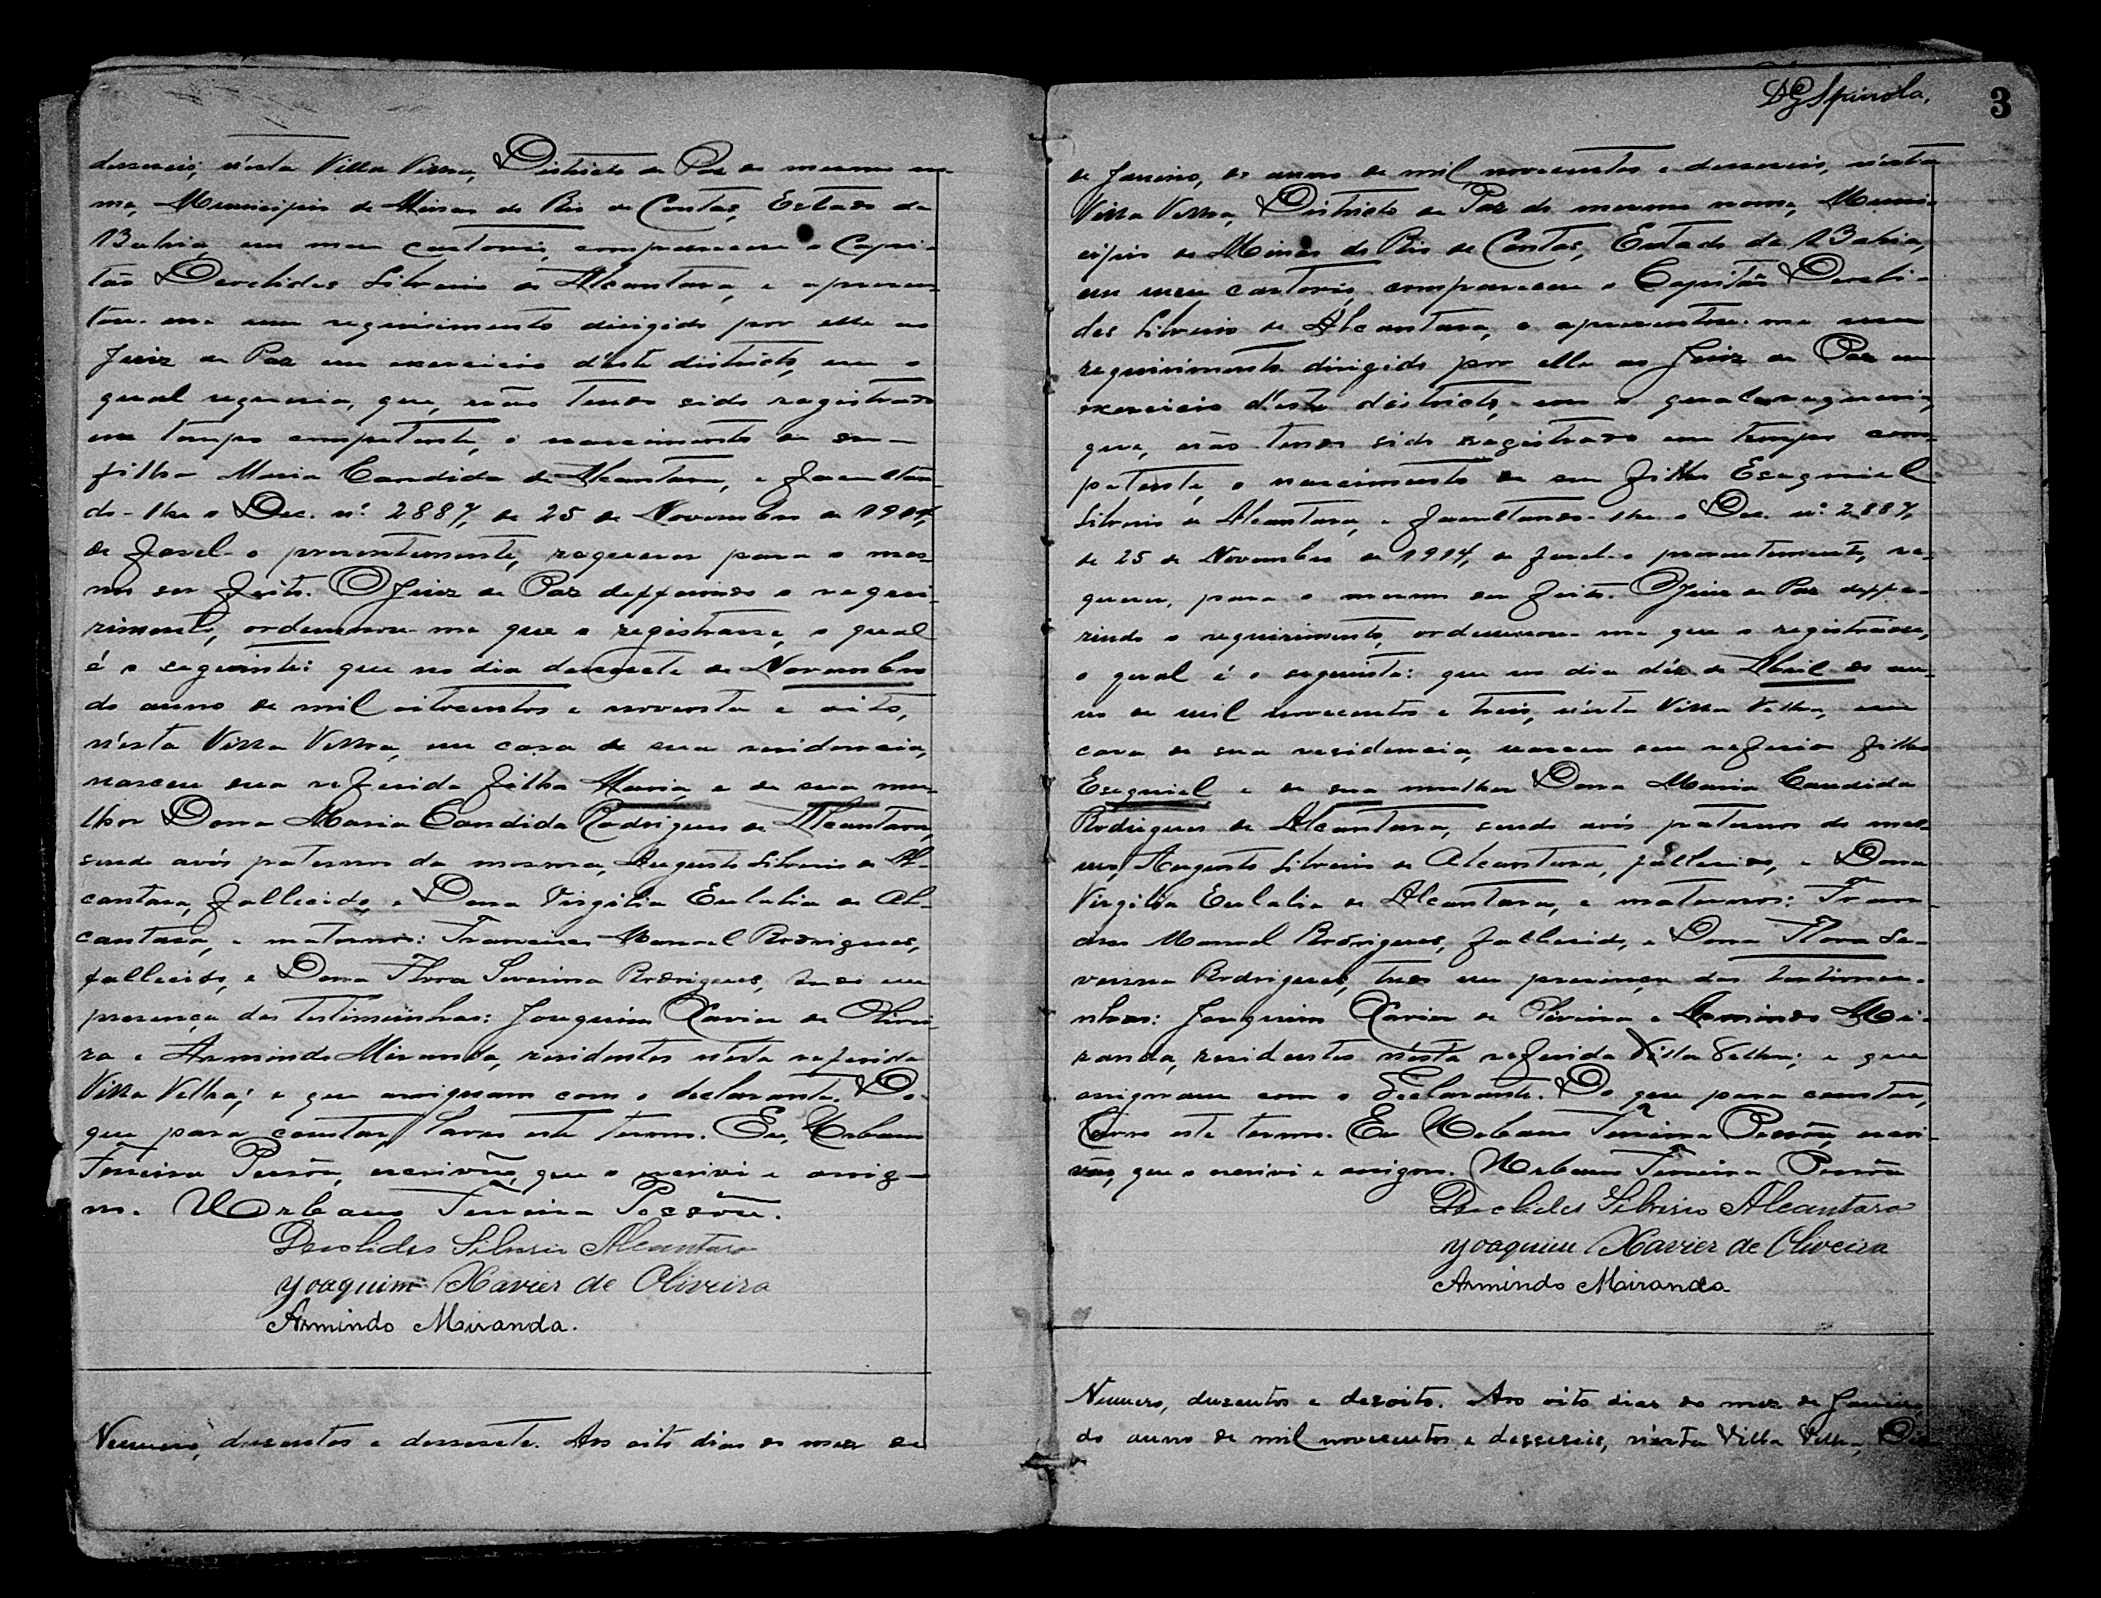 desseseis, n'esta Villa Velha, Districto de Paz do mesmo no-
me, Municipio de Minas do Rio de Contas, Estado da
Bahia, em meu cartorio, compareceu o Capi-
tão Deuclides Silverio de Alcantara, e apresen-
tou-me um requirimento dirigido por elle ao
Juiz de Paz em exercicio d'este districto, em o
qual requeria, que, não tendo sido registrado
em tempo competente, o nascimento de sua
filha Maria Candida de Alcantara, e facultan-
do-lhe o Dec. nº 2887, de 25 de Novembro de 1914,
de fasel-o presentemente, requerer para o mes-
mo ser feito. O Juiz de Paz defferindo o requi-
rimento, ordennou-me que o registrasse, o qual
é o seguinte: que no dia desesete de Novembro
do anno de mil oitocentos e noventa e oito,
n'esta Villa Velha, em casa de sua residencia,
nasceu sua referida filha Maria, e de sua mu-
lher Dona Maria Candida Rodrigues de Alcantara,
sendo avós paternos da mesma, Augusto Silverio de Al-
cantara, fallecido, e Dona Virgilia Eulalia de Al-
cantara, e maternos: Francisco Manoel Rodrigues,
fallecido, e Dona Flora Severina Rodrigues, tudo em
presença das testimunhas: Joaquim Xavier de Olivei-
ra e Armindo Miranda, residentes n'esta referida
Villa Velha; e que assignam com o declarante. Do
que para constar, lavro este termo. Eu, Urbano
Ferreira Pessôa, escrivão, que o escrivi e assig-
no. Urbano Ferreira Pessôa.
Deuclides Silverio Alcantara
Joaquim Xavier de Oliveira
Armindo Miranda.
Numero, dusentos e dessesete. Aos oito dias do mez de
3
DG Spinola.
de Janeiro, do anno de mil novecentos e desseseis, n'esta
Villa Velha, Districto de Paz do mesmo nome, Muni-
cipio de Minas do Rio de Contas, Estado da Bahia,
em meu cartorio, compareceu o Capitão Deucli-
des Silverio de Alcantara, e apresentou-me um
requirimento dirigido por elle ao Juiz de Paz em
exercicio d'este districto, em o qual requeria,
que, não tendo sido registrado em tempo com-
petente, o nascimento de seu filho Esequiel
Silverio de Alcantara, e facultando-lhe o Dec. nº 2887,
de 25 de Novembro de 1914, de fasel-o presentemente, re-
querer, para o mesmo ser feito. O Juiz de Paz deffe-
rindo o requirimento, ordennou-me que o registrasse,
o qual é o seguinte: que no dia déz de Abril do an-
no de mil novecentos e treis, n'esta Villa Velha, em
casa de sua residencia, nasceu seu referido filho
Esequiel e de sua mulher Dona Maria Candida
Rodrigues de Alcantara, sendo avós paternos do mes-
mo, Augusto Silverio de Alcantara, fallecido, e Dona
Virgilia Eulalia de Alcantara, e maternos: Fran-
cisco Manoel Rodrigues, fallecido, e Dona Flora Se-
verina Rodrigues, tudo em presença das testimu-
nhas: Joaquim Xavier de Oliveira e Armindo Mi-
randa, residentes n'esta referida Villa Velha; e que
assignam com o Declarante. Do que para constar,
Lavro este termo. Eu Urbano Ferreira Pessôa, escri-
vão, que o escrivi e assigno. Urbano Ferreira Pessôa
Deuclides Silverio Alcantara
Joaquim Xavier de Oliveira
Armindo Miranda.
Numero, dusentos e desoito. Aos oito dias do mez de Janeiro
do anno de mil novecentos e desseseis, n'esta Villa Velha, Dis